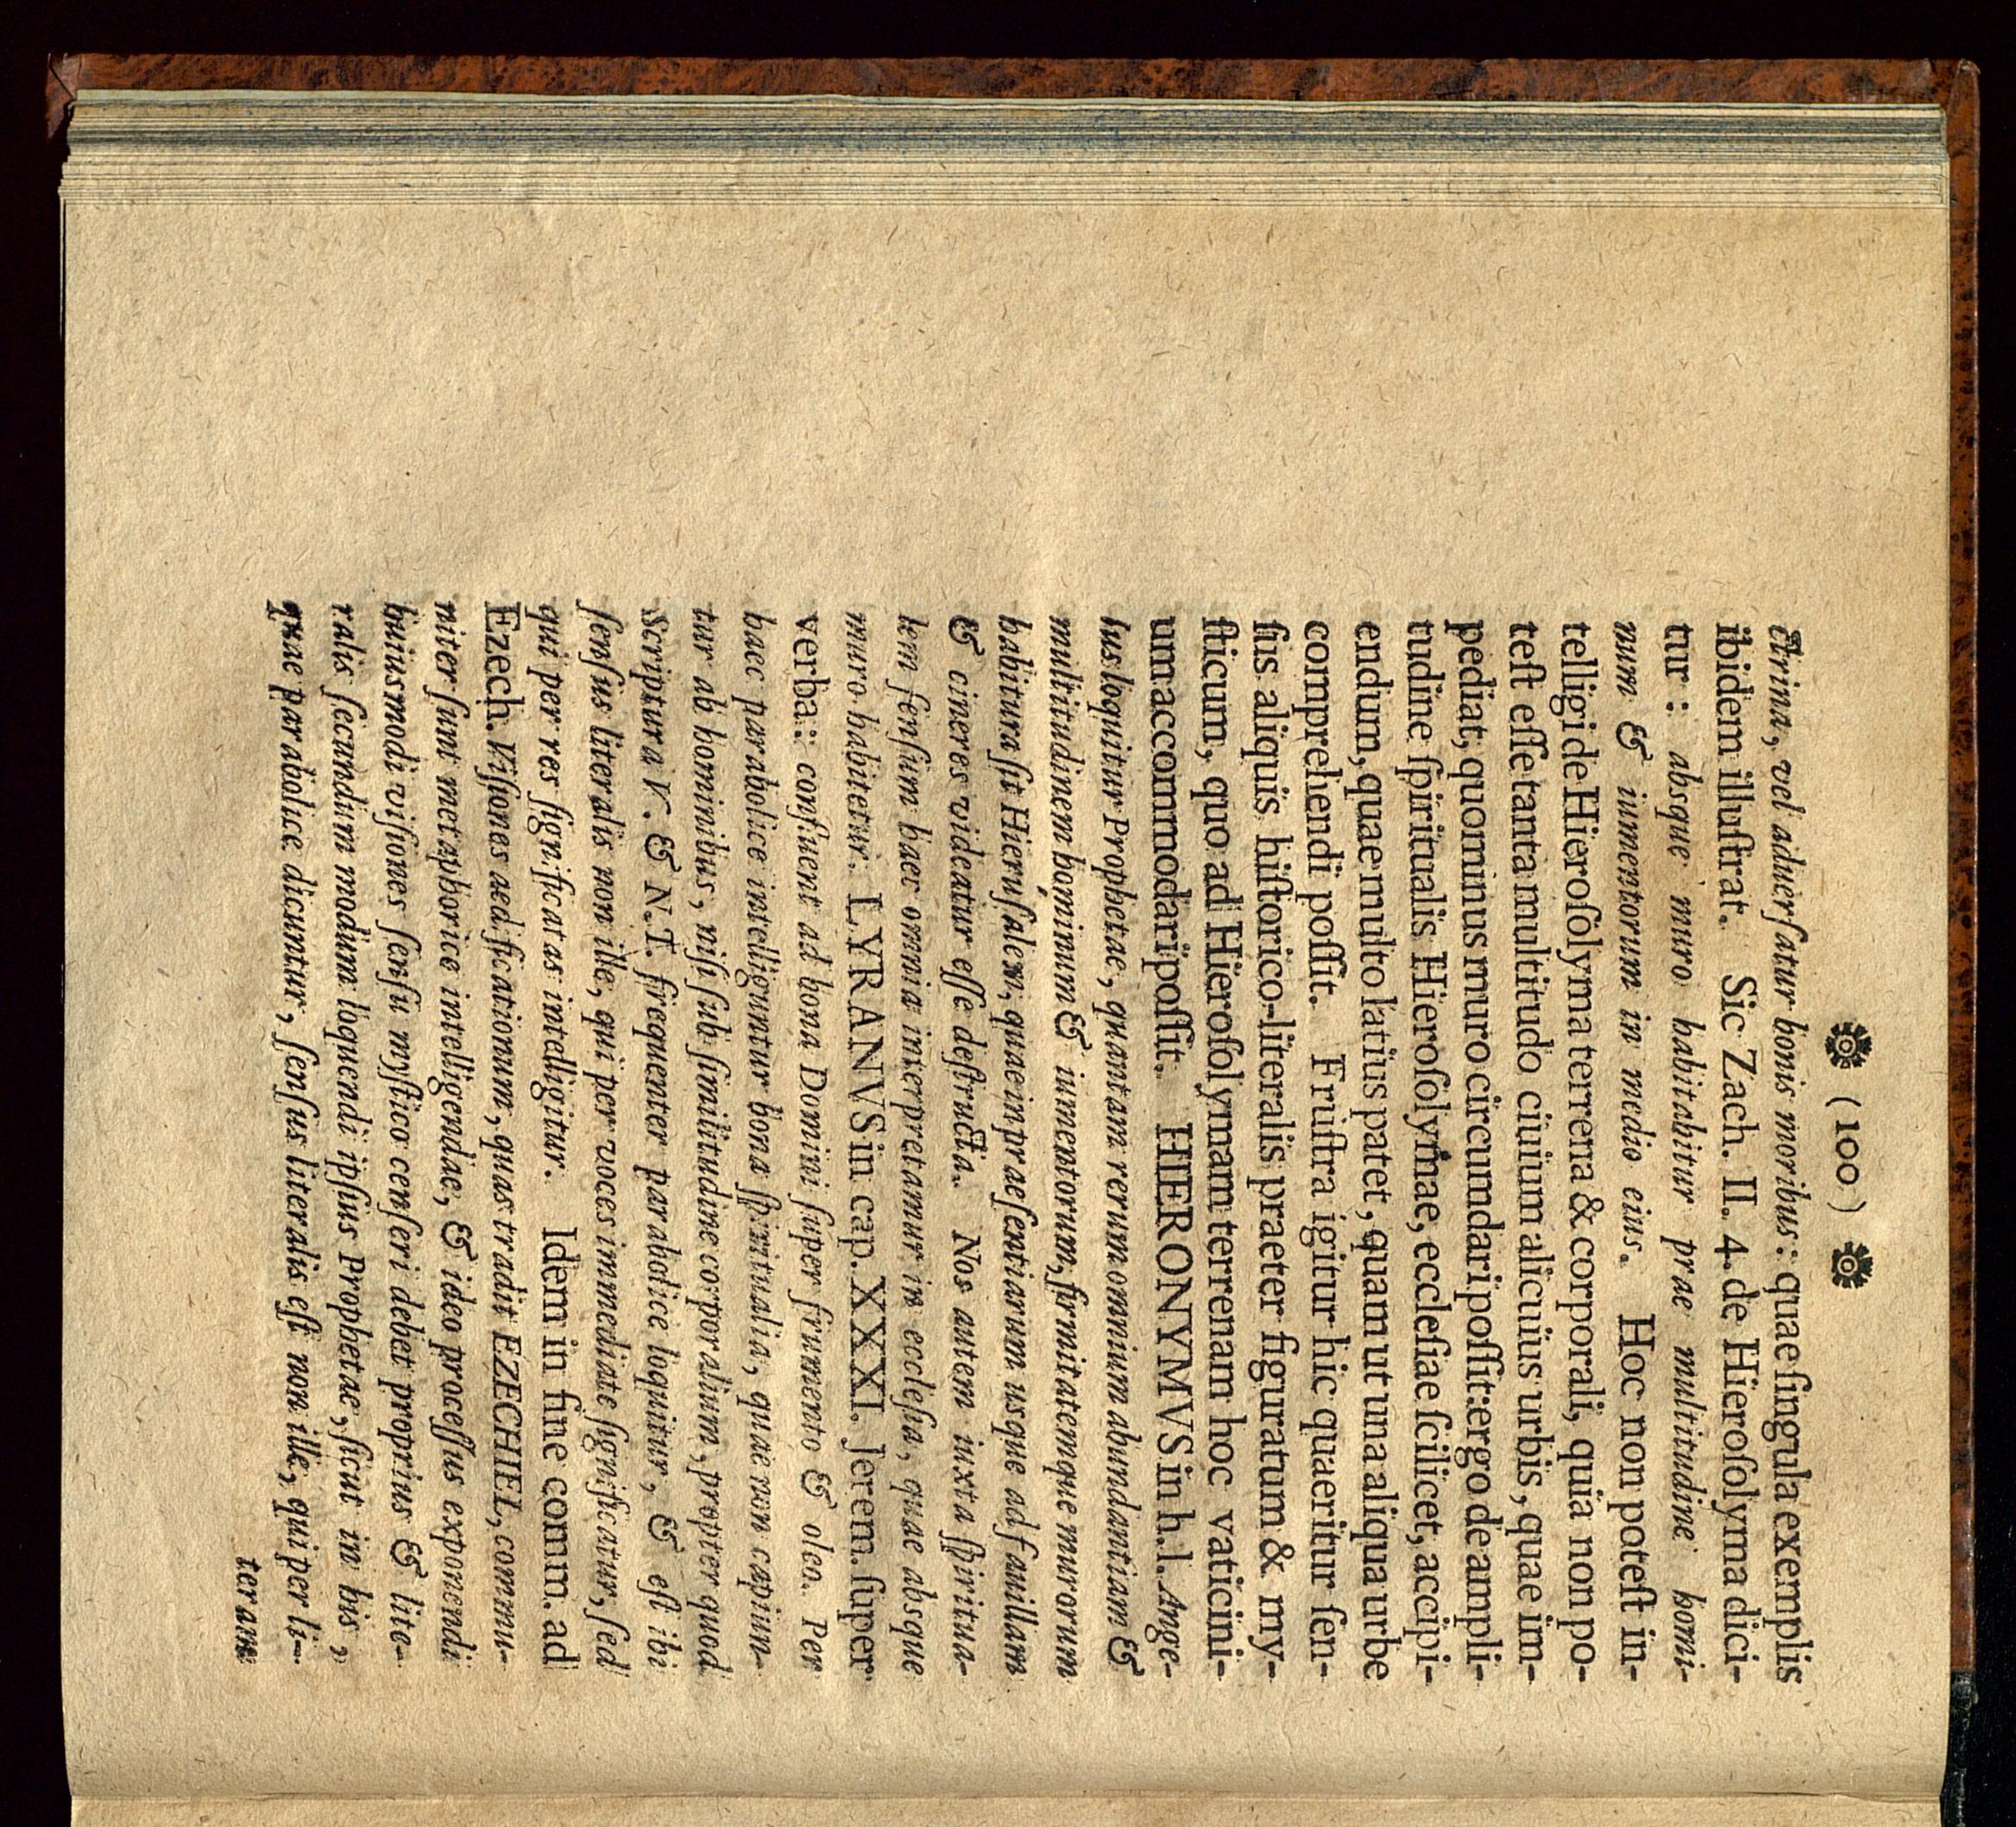 (100)
ctrina, vel aduerſatur bonis moribus: quae ſingula exemplis
ibidem illuſtrat. Sic Zach. II. 4. de Hieroſolyma dici-
tur: absque muro habitabitur prae multitudine homi-
num & iumentorum in medio eius. Hoc non poteſt in-
telligi de Hieroſolyma terrena & corporali, quia non po-
teſt eſſe tanta multitudo ciuium alicuius urbis, quae im-
pediat, quominus muro circumdari poſſit: ergo de ampli-
tudine ſpiritualis Hieroſolymae, eccleſiae ſcilicet, accipi-
endum, quae multo latius patet, quam ut una aliqua urbe
comprehendi poſſit. Fruſtra igitur hic quaeritur ſen-
ſus aliquis hiſtorico-literalis praeter figuratum & my-
ſticum, quo ad Hieroſolymam terrenam hoc vaticini-
um accommodari poſſit. HIERONYMVS in h. l. Ange-
lus loquitur Prophetae, quantam rerum omnium abundantiam &
multitudinem hominum & iumentorum, firmitatemque murorum
habitura ſit Hieruſalem, quae in praeſentiarum usque ad fauillam
& cineres videatur eſſe deſtructa. Nos autem iuxta ſpiritua-
lem ſenſum haec omnia interpretamur in eccleſia, quae absque
muro habitetur. LYRANVS in cap. XXXI. Jerem. ſuper
verba: confluent ad bona Domini ſuper frumento & oleo. Per
haec parabolice intelliguntur bona ſpiritualia, quae non capiun-
tur ab hominibus, niſi ſub ſimilitudine corporalium, propter quod
Scriptura V. & N. T. frequenter parabolice loquitur, & eſt ibi
ſenſus literalis non ille, qui per voces immediate ſignificatur, ſed
qui per res ſignificatas intelligitur. Idem in fine comm. ad
Ezech. Viſiones aedificationum, quas tradit EZECHIEL, commu-
niter ſunt metaphorice intelligendae, & ideo proceſſus exponendi
huiusmodi viſiones ſenſu myſtico cenſeri debet proprius & lite-
ralis ſecundum modum loquendi ipſius Prophetae, ſicut in his,
quae parabolice dicuntur, ſenſus literalis eſt non ille, qui per li-
teram